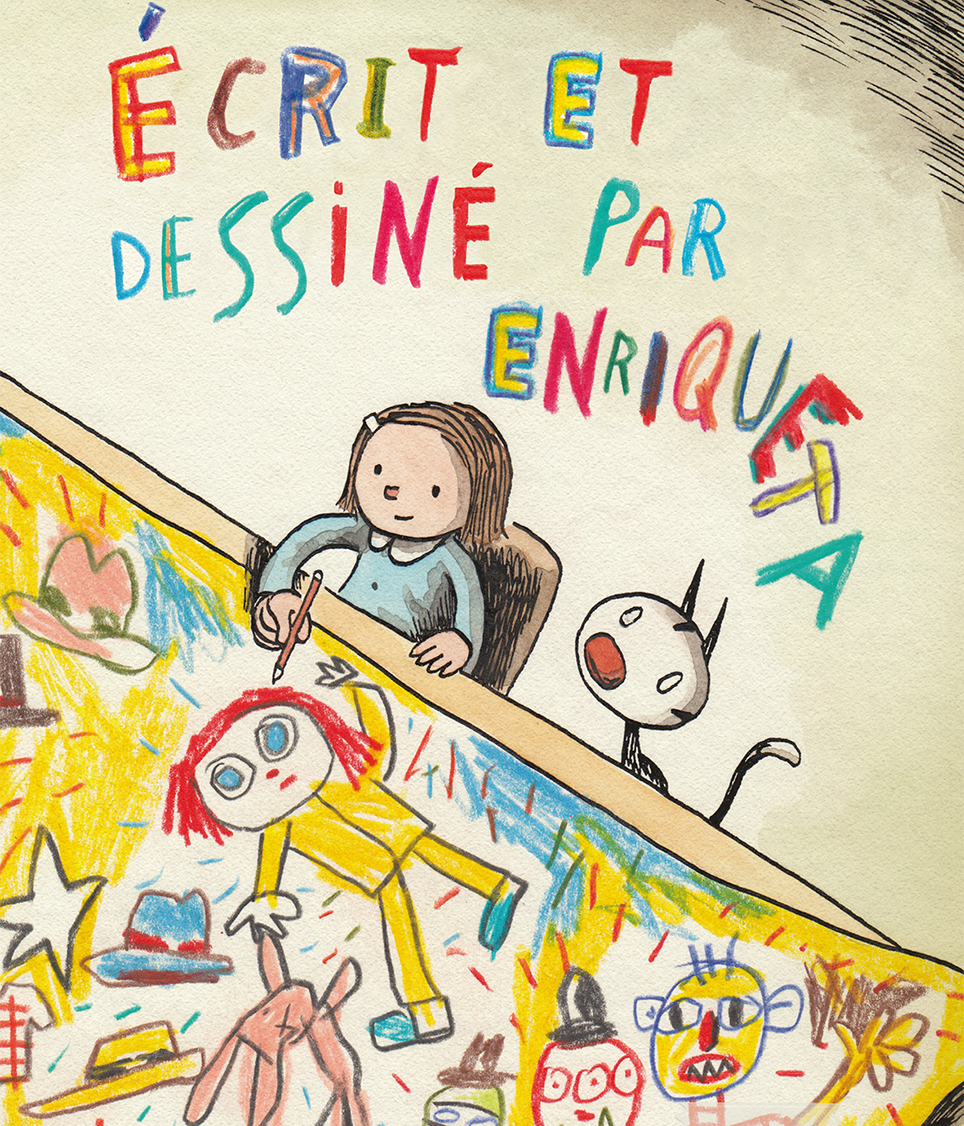 ÉCRIT ET
DESSINÉ PAR
ENRIQUETA